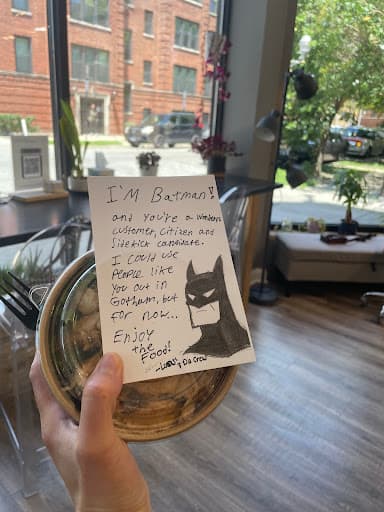 I'M Batman!
and you're a
customer, citizen and
Sidekick candidate.
I could use
People like
you out in
Gotham, but
for now...
Enjoy
the
Food!
& Da Crew